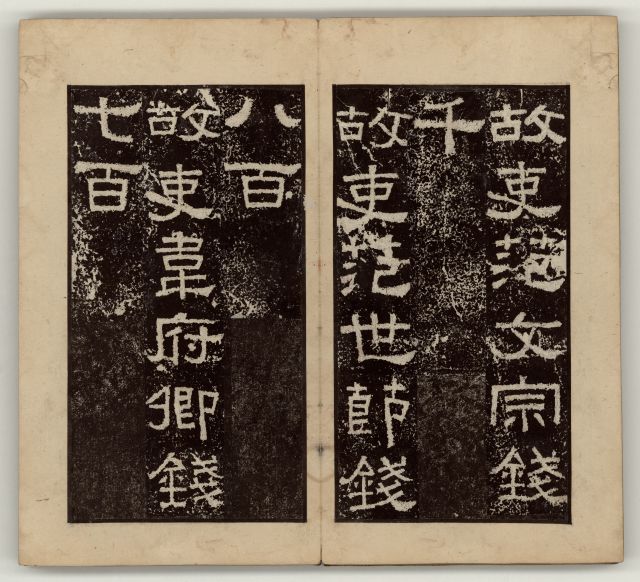 故吏范文宗錢
千
故吏范世節錢
八百
故吏韋府卿錢
七百